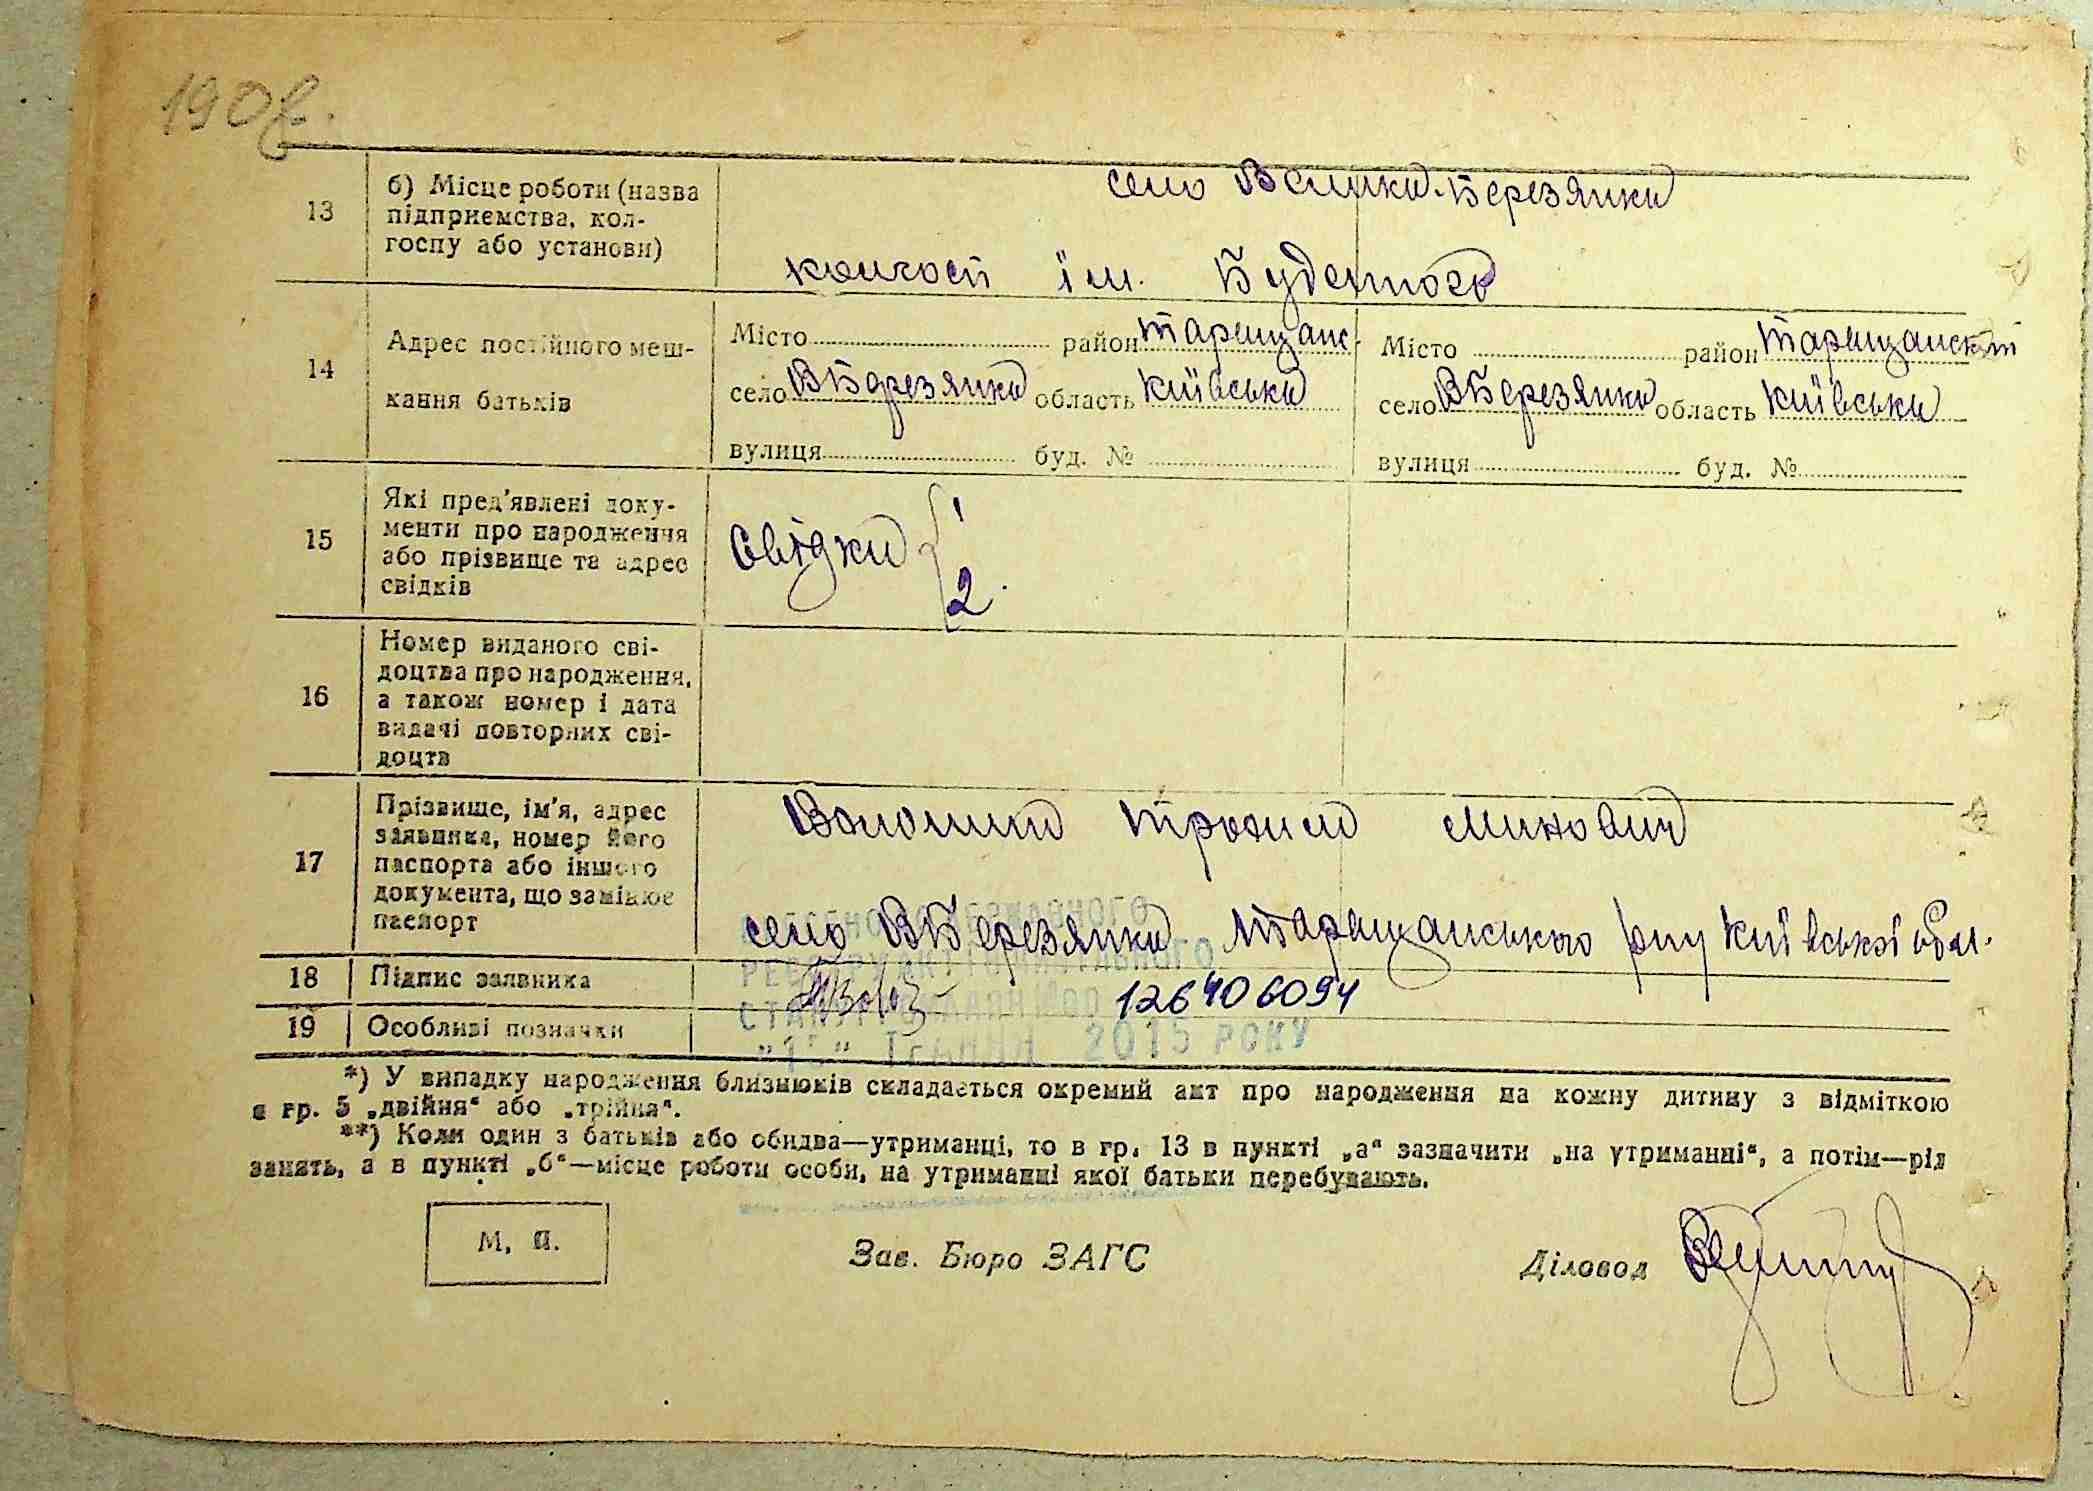 190
13
б) Місце роботи (назва
підприємства, кол-
госпу або установи)
село Велика-Березянка
колгосп ім. Буденного
14
Адрес постійного меш-
кання батьків
Місто район Таращанс.
село ВБерезянка область Київська
вулиця буд. №
Місто район Таращанский
село ВБерезянка область Київська
вулиця буд. №
15
Які пред'явлені доку-
менти про народження
або прізвище та адрес
свідків
Свідки { 1
2.
16
Номер виданого сві-
доцтва про народження,
а також номер і дата
видачі повторних сві-
доцтв
17
Прізвище, ім'я, адрес
заявника, номер його
паспорта або іншого
документа, що замінює
паспорт
Волошин Трохим Минович
село ВБерезянка Таращанського р-ну Київської обл.
ДЕРЖАВНОГО
РЕЄСТРУ АКТІВ ЦИВІЛЬНОГО
СТАНУ ГРОМАДЯН
2015 РОКУ
18
Підпис заявника
126406094
19
Особливі позначки
*) У випадку народження близнюків складається окремий акт про народження на кожну дитину з відміткою
в гр. 5 „двійня“ або „трійня“.
**) Коли один з батьків або обидва—утриманці, то в гр. 13 в пункті „а“ зазначити „на утриманні“, а потім—рід
занять, а в пункті „б“—місце роботи особи, на утриманні якої батьки перебувають.
М. П.
Зав. Бюро ЗАГС
Діловод